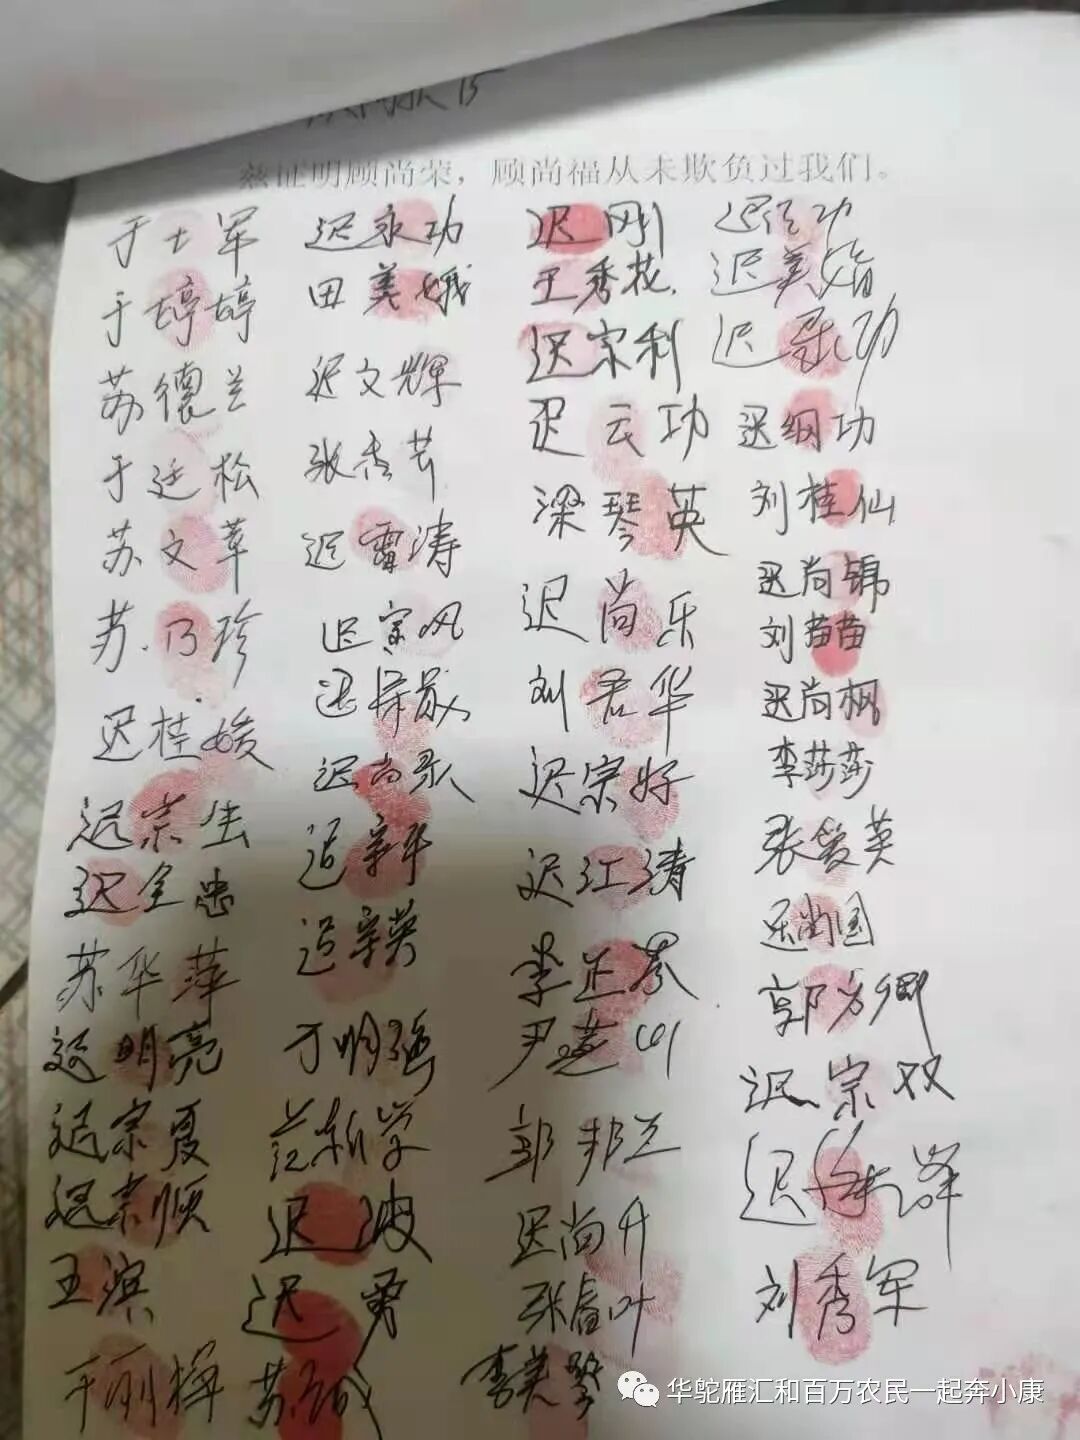 慈证明顾尚荣，顾尚福从未欺负过我们。
于士军 迟永功 迟刚 迟经功
于婷婷 田美娥 王秀花 迟美娟
苏德兰 迟文辉 迟宗利 迟功
于廷松 张秀芹 迟云功 迟纲功
苏文革 迟雷涛 梁琴英 刘桂仙
苏乃珍 迟宗风 迟尚乐 迟尚锦
迟桂媛 迟 刘君华 刘苗苗
迟宗生 迟尚 迟宗好 迟尚枫
迟全忠 迟 迟江涛 李莎莎
苏华萍 迟英 李正 张爱英
迟明亮 明强 尹 迟尚国
迟宗夏 范新学 郭邦兰 郭方卿
迟宗顺 迟波 迟尚升 迟宗双
王滨 迟勇 张春叶 迟
于丽梅 苏 李美 刘秀军
华鸵雁汇和百万农民一起奔小康